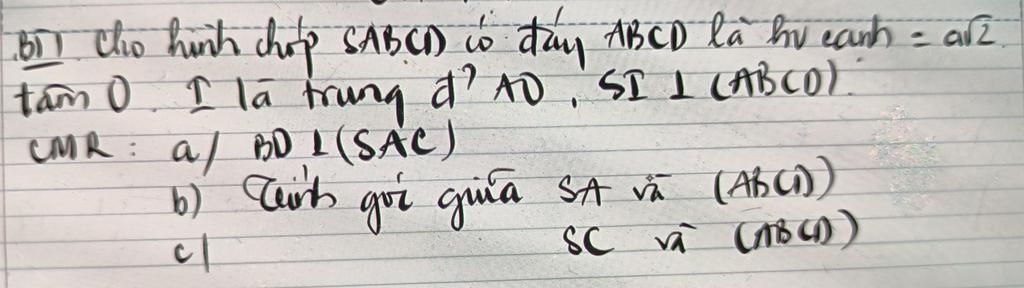 B1) Cho hình chóp SABCD có đáy ABCD là hv cạnh = a√2.
tâm O. I là trung đ' AO, SI ⊥ (ABCD).
CMR: a/ BD ⊥ (SAC)
b) Tính góc giữa SA và (ABCD)
c/ SC và (ABCD)